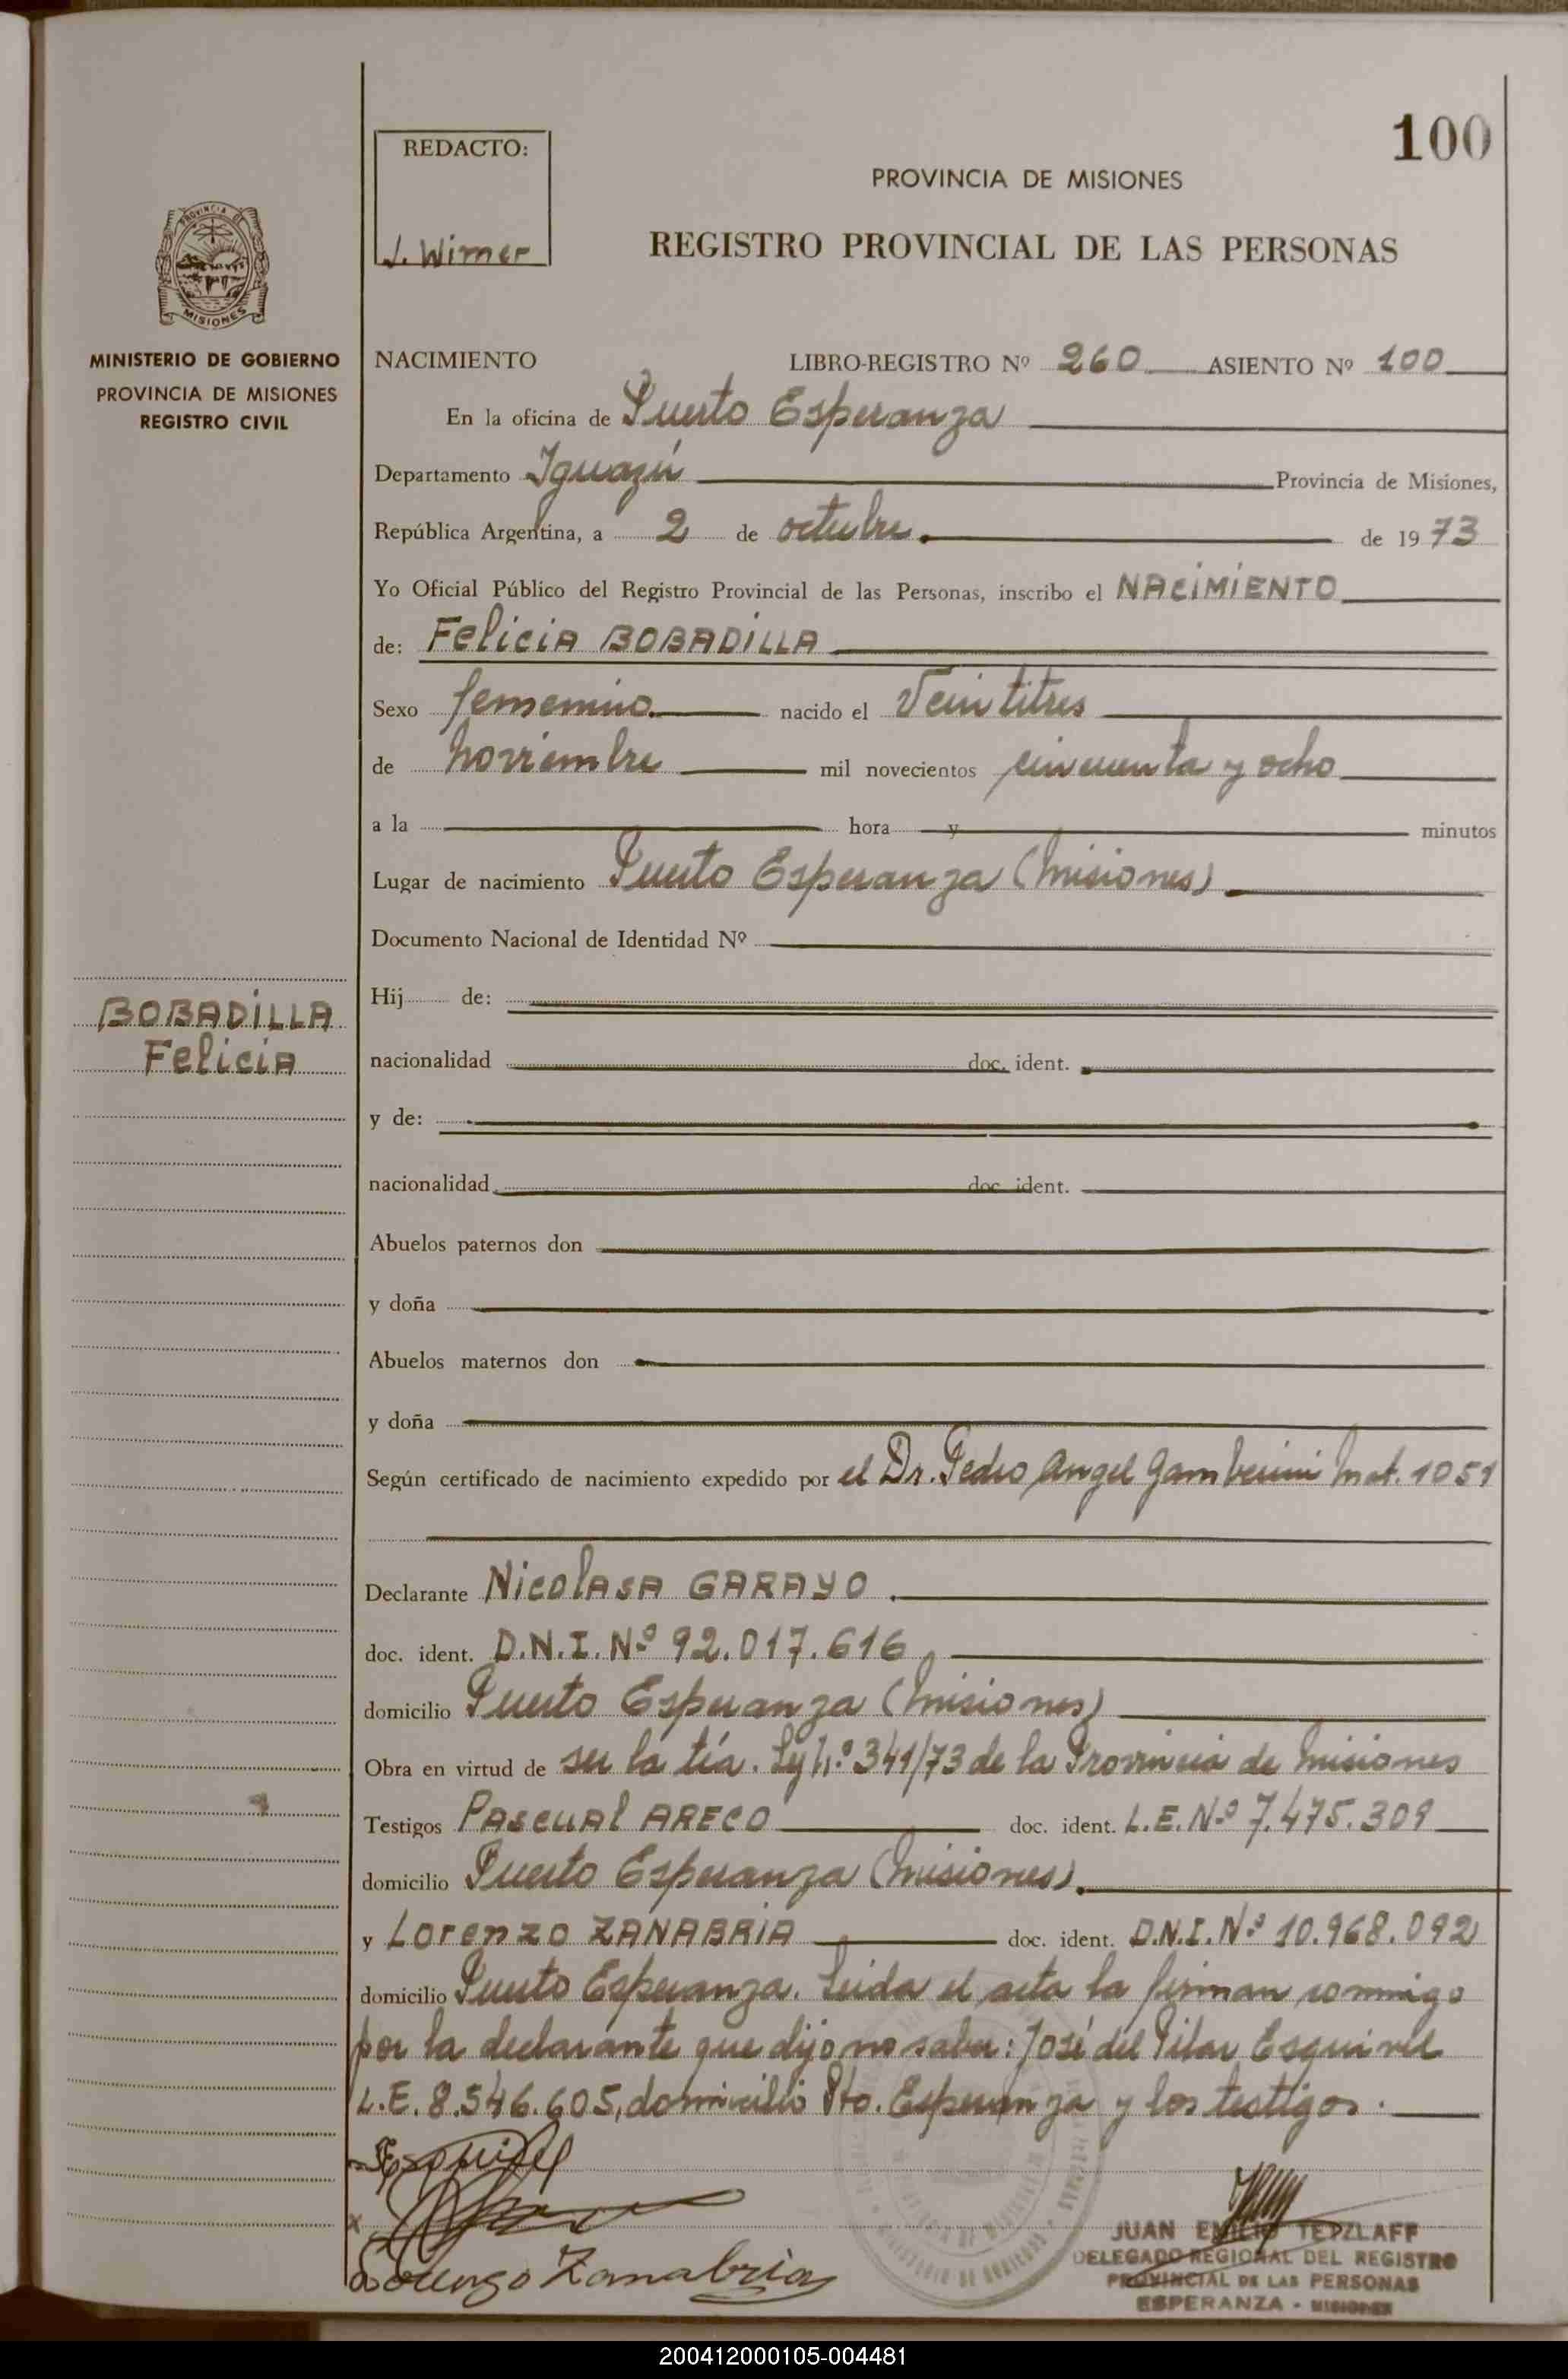 100
REDACTO:
J. Wimer
PROVINCIA DE MISIONES
REGISTRO PROVINCIAL DE LAS PERSONAS
PROVINCIA DE
MISIONES
MINISTERIO DE GOBIERNO
PROVINCIA DE MISIONES
REGISTRO CIVIL
NACIMIENTO LIBRO-REGISTRO Nº 260 ASIENTO Nº 100
En la oficina de Puerto Esperanza
Departamento Iguazú Provincia de Misiones,
República Argentina, a 2 de octubre. de 1973
Yo Oficial Público del Registro Provincial de las Personas, inscribo el NACIMIENTO
de: Felicia BOBADILLA
Sexo femenino nacido el Veintitres
de noviembre mil novecientos cincuenta y ocho
a la hora y minutos
Lugar de nacimiento Puerto Esperanza (Misiones)
Documento Nacional de Identidad Nº
BOBADILLA
Felicia
Hij de:
nacionalidad doc. ident.
y de:
nacionalidad doc. ident.
Abuelos paternos don
y doña
Abuelos maternos don
y doña
Según certificado de nacimiento expedido por el Dr. Pedro Angel Gamberini Mat. 1051
Declarante Nicolasa GARAYO.
doc. ident. D.N.I. Nº 92.017.616
domicilio Puerto Esperanza (Misiones)
Obra en virtud de ser la tía. Ley Nº 341/73 de la Provincia de Misiones
Testigos Pascual ARECO doc. ident. L.E. Nº 7.475.309
domicilio Puerto Esperanza (Misiones).
y Lorenzo ZANABRIA doc. ident. D.N.I. Nº 10.968.092
domicilio Puerto Esperanza. Leida el acta la firman conmigo
por la declarante que dijo no saber: José del Pilar Esquivel
L.E. 8.546.605, domicilio Pto. Esperanza y los testigos.
Esquivel
Lorenzo Zanabria
JUAN EMILIO TETZLAFF
DELEGADO REGIONAL DEL REGISTRO
PROVINCIAL DE LAS PERSONAS
ESPERANZA - MISIONES
200412000105-004481